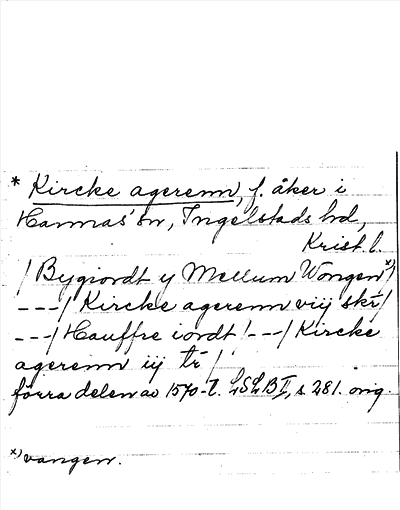 * Kircke agerenn, f. åker i
Hannas' sn, Ingelstads hd,
Krist. l.
/ Bygiordt y Mellum Wongen x)/
---/ Kircke agerenn viij skr/
---/ Hauffre iordt! ---/ Kircke
agerenn iij tr /
förra delen av 1570-t. LSLB II, s 281. orig.
x) vangen.